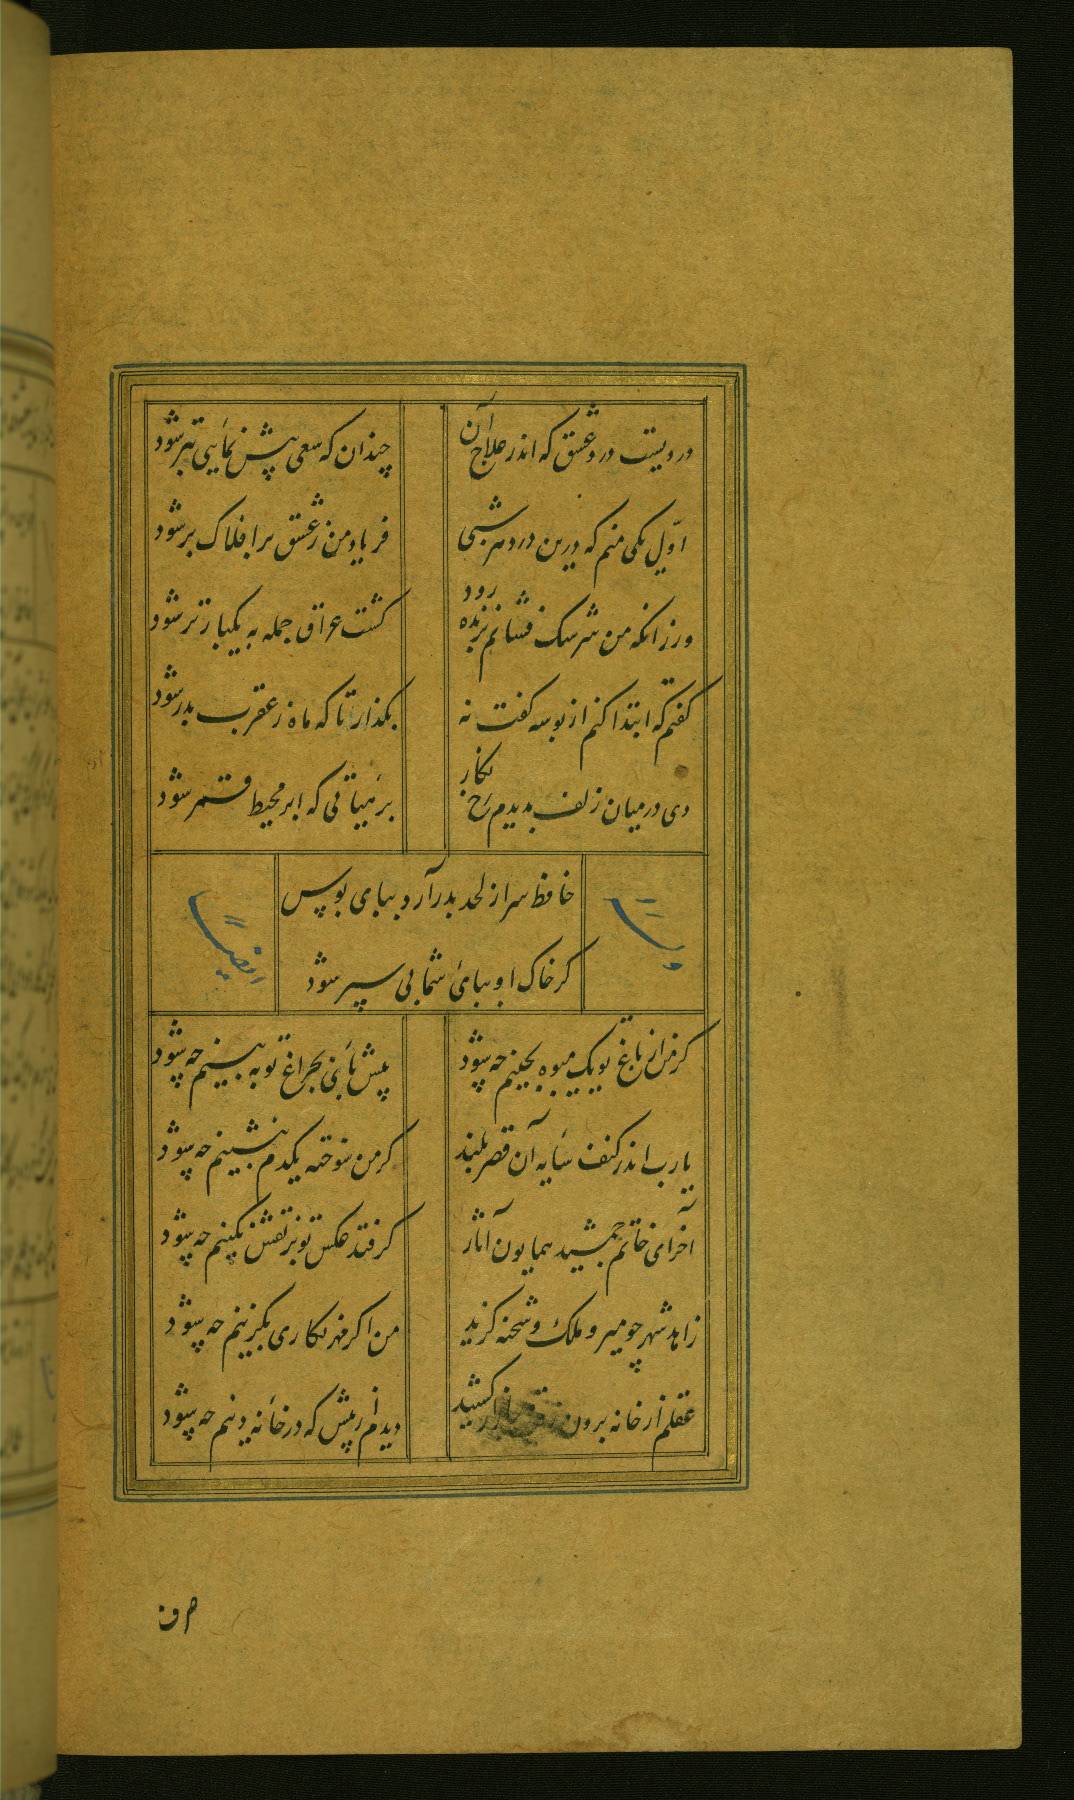 دردیست درد عشق که اندر علاج آن
چندان که سعی پیش نمایی تبر شود
اوّل یکی منم که درین درد هر شبی
فریاد من ز عشق بر افلاک بر شود
ور زانکه من سرشک فشانم بزنده رود
کشت عراق جمله به یکبار تر شود
گفتم که ابتدا کنم از بوسه گفت نه
بگذار تا که ماه ز عقرب بدر شود
دی در میان زلف بدیدم رخ نگار
بر هیاتی که ابر محیط قمر شود
حافظ سر از لحد بدر آرد بپای بوس
گر خاک او بپای شما پی سپر شود
وله
ایضا
گر من از باغ تو یک میوه بچینم چه شود
پیش پائی بچراغ تو ببینم چه شود
یارب اندر کنف سایه آن قصر بلند
گر من سوخته یکدم بنشینم چه شود
آخر ای خاتم جمشید همایون آثار
گر فتد عکس تو بر نقش نگینم چه شود
زاهد شهر چو میر و ملک و شحنه گزید
من اگر مهر نگاری بگزینم چه شود
عقلم از خانه برون کشید
دیدم از پیش که در خانه دینم چه شود
صرف